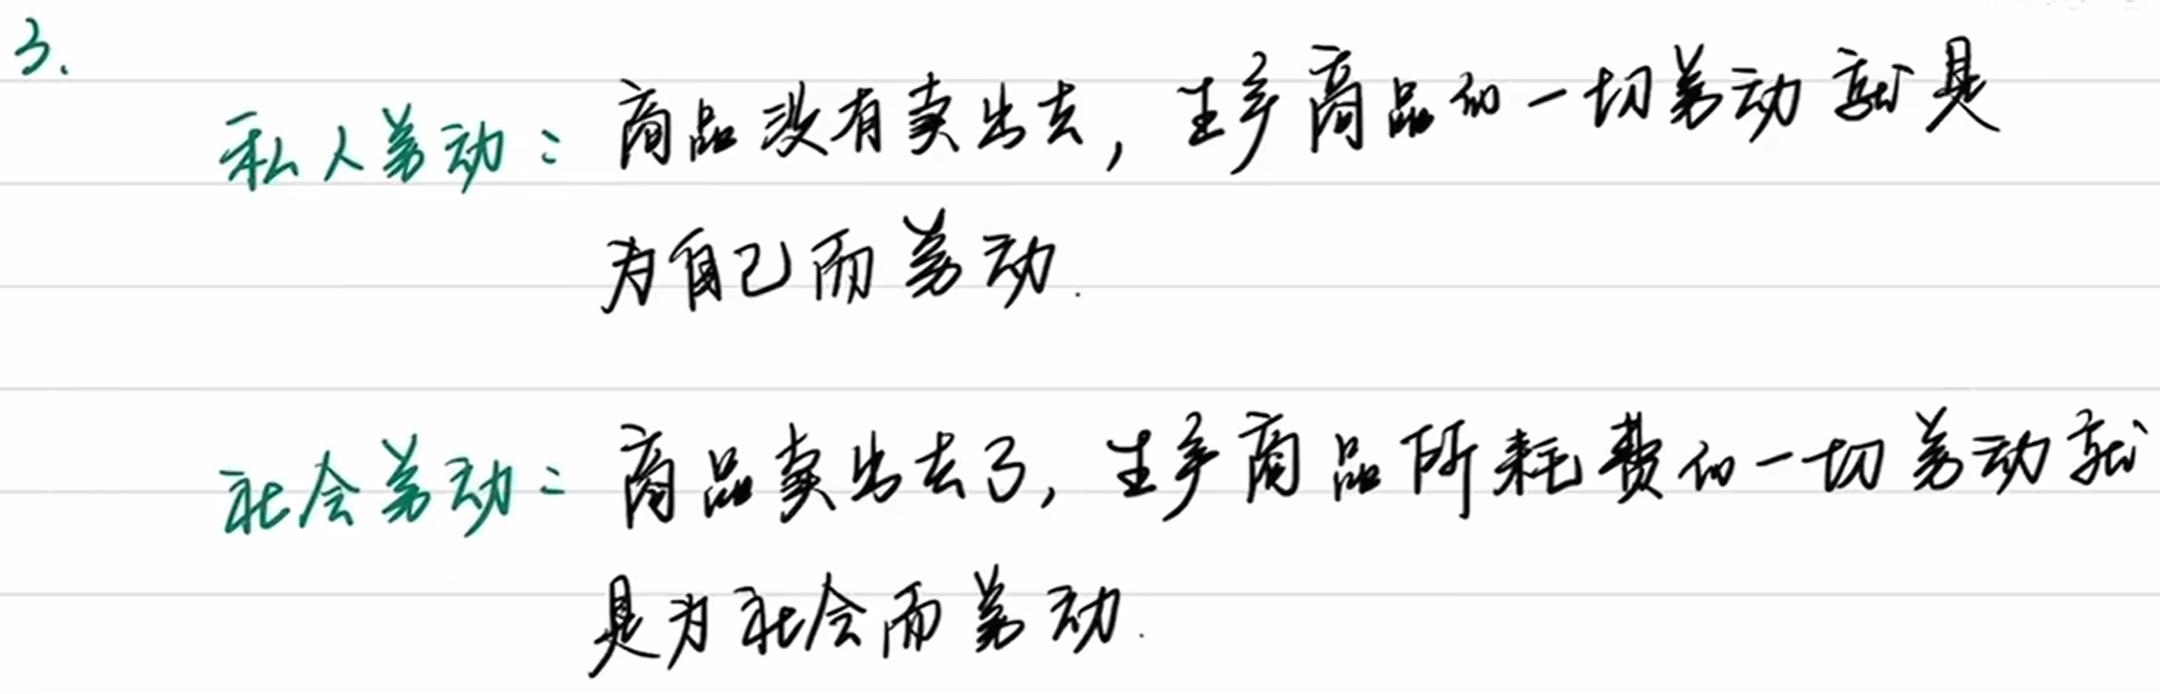 3.
私人劳动：商品没有卖出去，生产商品的一切劳动就是
为自己而劳动.
社会劳动：商品卖出去了，生产商品所耗费的一切劳动就
是为社会而劳动.